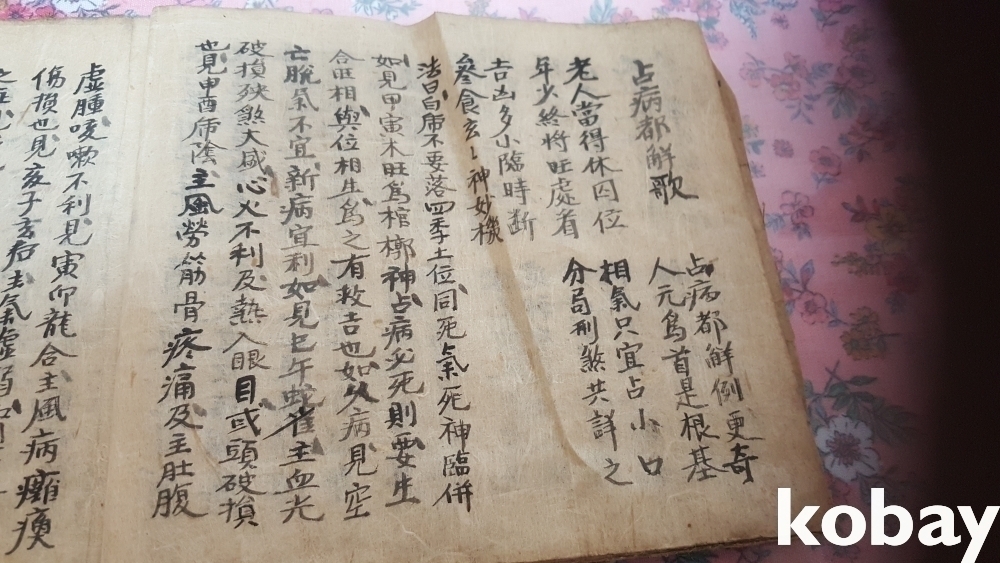 占病都解歌
占病都解例更奇
人元爲首是根基
相氣只宜占小口
分局刑煞共詳之
老人當得休囚位
年少終將旺處看
吉凶多小臨時斷
叅食玄〻神妙機
法曰白虎不要落四季土位同死氣死神臨併
如見甲寅木旺爲棺槨神占病必死則要生
合旺相與位相生爲之有救吉也如久病見空
亡脫氣不宜新病宜利如見巳午蛇雀主血光
破損殃煞大威心火不利及熱入眼目或頭破損
也見申酉虎陰主風勞筋骨疼痛及主肚腹
虛腫咳嗽不利見寅卯龍合主風病癱瘓
傷損也見亥子玄后主氣虛弱
kobay